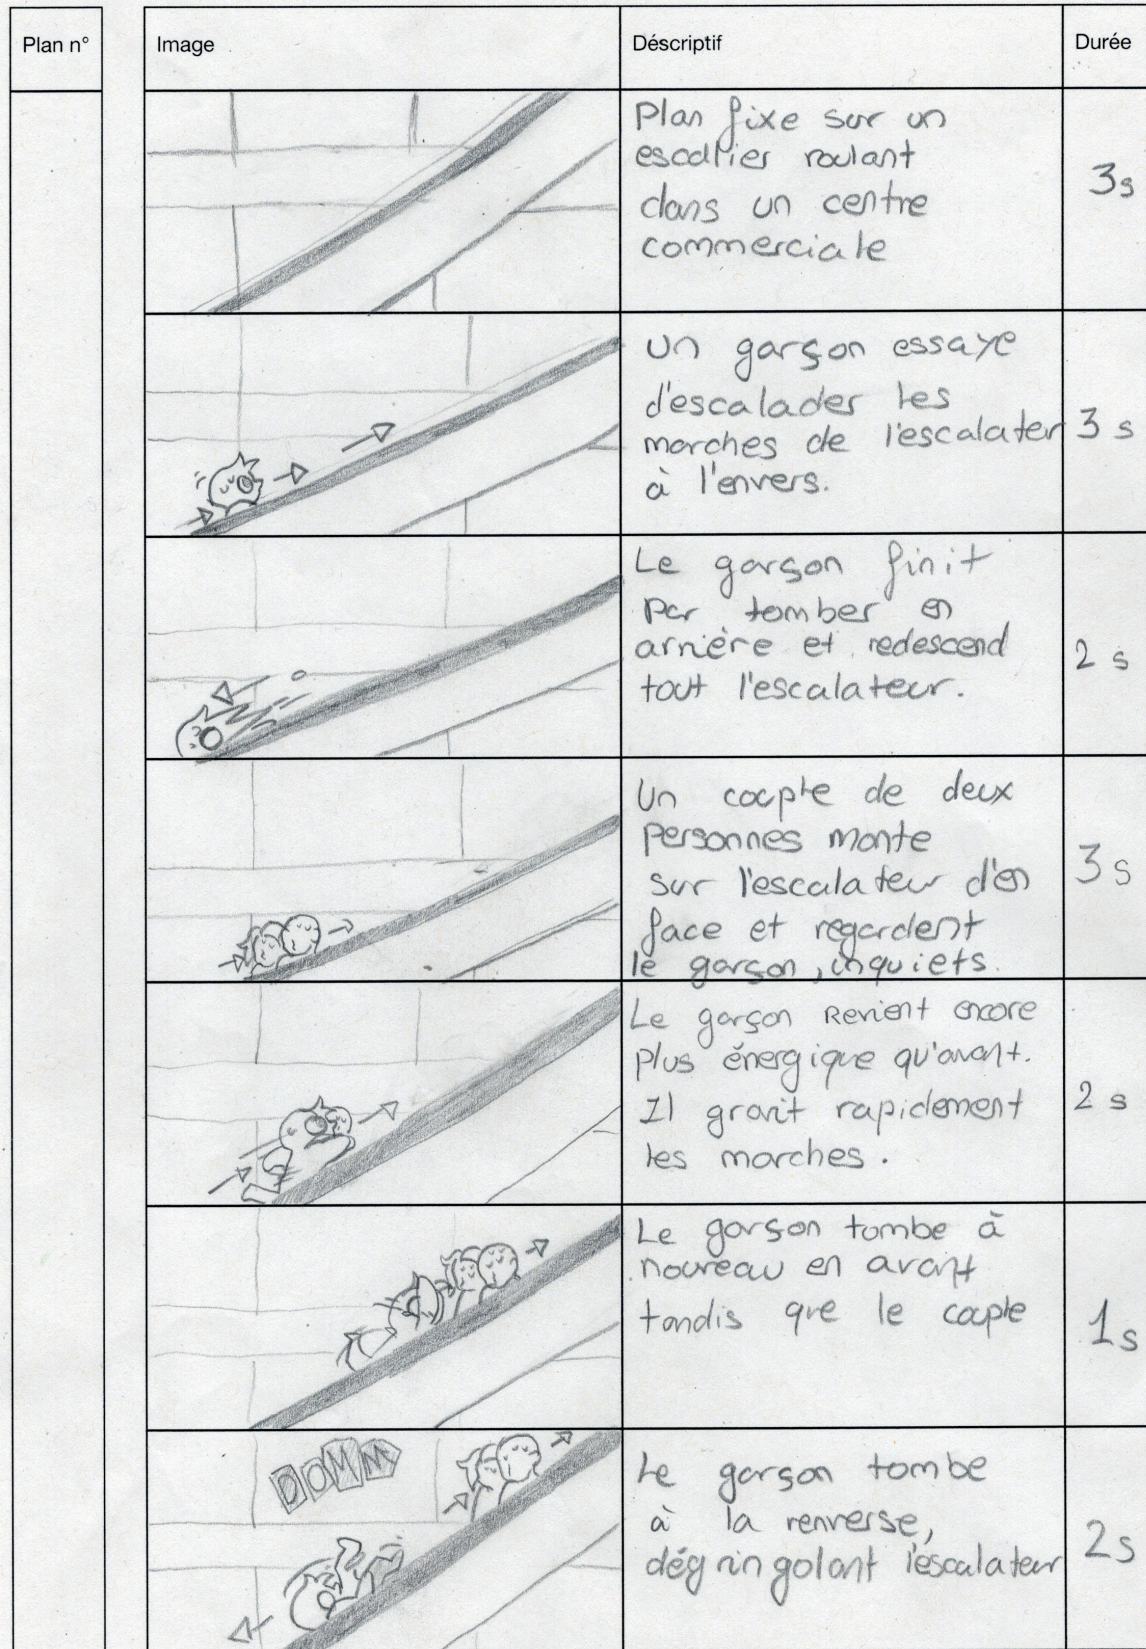 Plan n°
Image
Déscriptif
Durée
Plan fixe sur un
escallier roulant
dans un centre
commerciale
3s
Un garçon essaye
d'escalader les
marches de l'escalater
à l'envers.
3 s
Le garçon finit
par tomber en
arrière et redescend
tout l'escalateur.
2 s
Un couple de deux
personnes monte
sur l'escalateur d'en
face et regardent
le garçon, inquiets.
3 s
Le garçon Revient encore
plus énergique qu'avant.
Il gravit rapidement
les marches.
2 s
Le garçon tombe à
nouveau en avant
tandis que le couple
1s
DOMM
Le garçon tombe
à la renverse,
dégringolant l'escalateur
2s